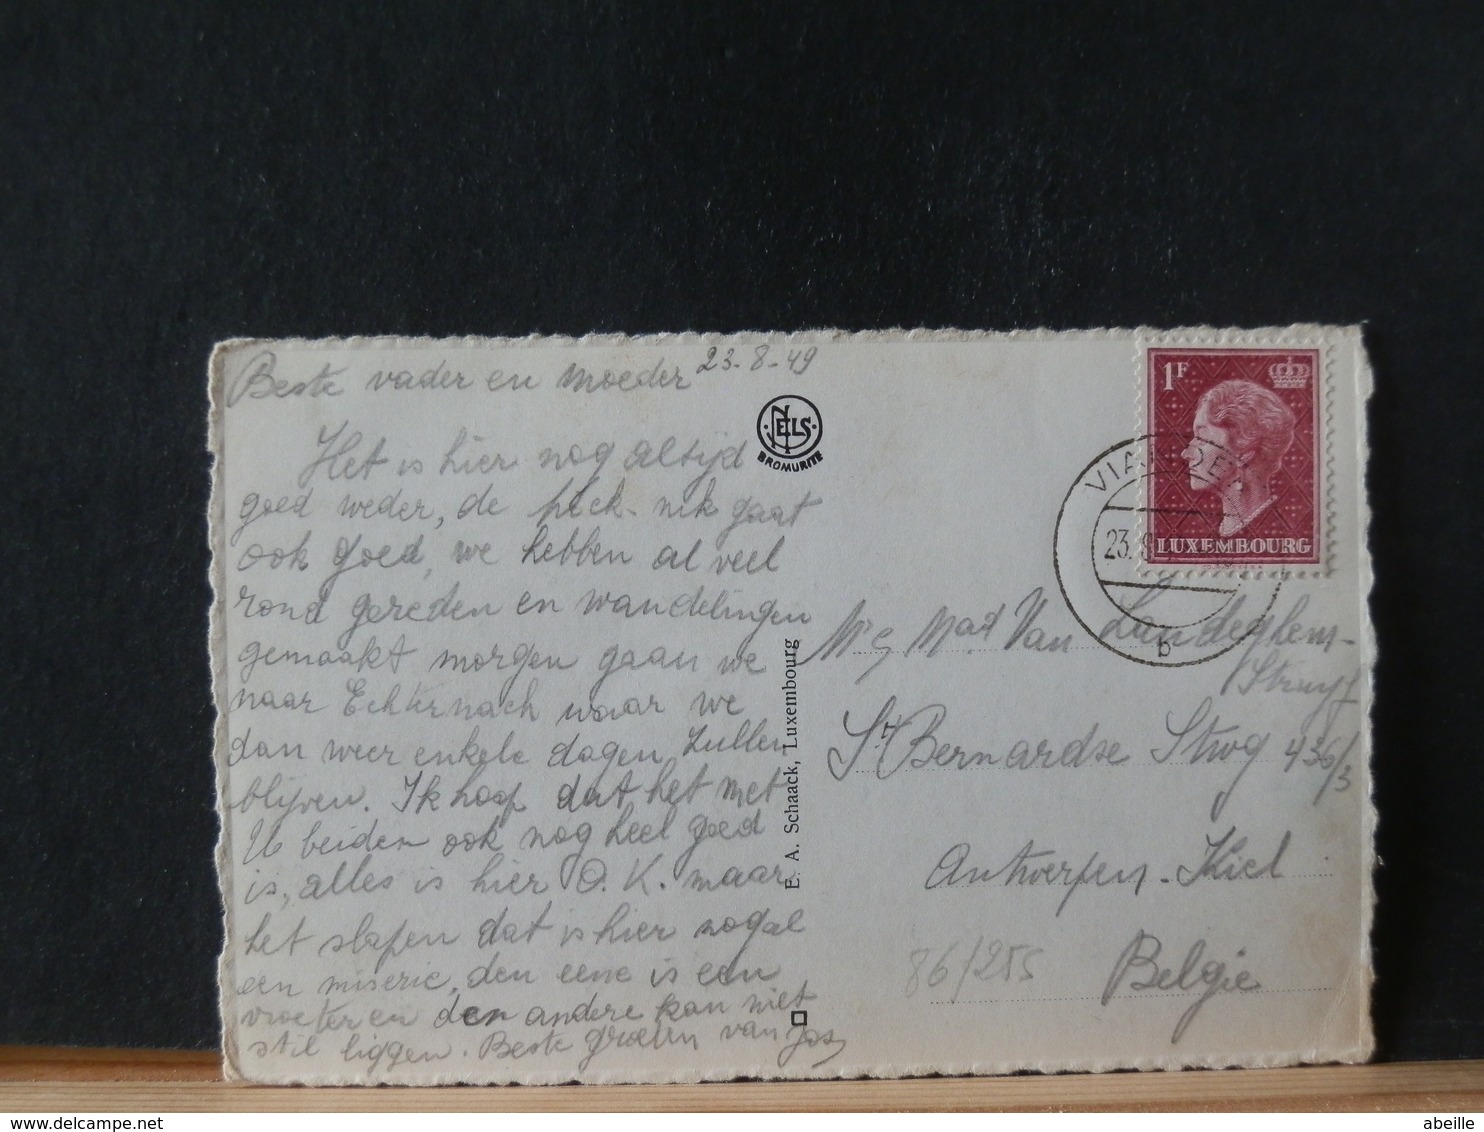 Beste vader en moeder 23-8-49
Het is hier nog altijd
goed weder, de pick-nik gaat
ook goed, we hebben al veel
rond gereden en wandelingen
gemaakt morgen gaan we
naar Echternach waar we
dan weer enkele dagen zullen
blijven. Ik hoop dat het met
U beiden ook nog heel goed
is, alles is hier O.K. maar
het slapen dat is hier nogal
een miserie, den eene is een
vroeter en den andere kan niet
stil liggen. Beste groeten van Jos
NELS
BROMURITE
E. A. Schaack, Luxembourg
1F
LUXEMBOURG
23.8
b
Mr & Mad Van Landeghem-
Struyf
St Bernardse Stwg 436/3
Antwerpen-Kiel
België
86/255
abeille